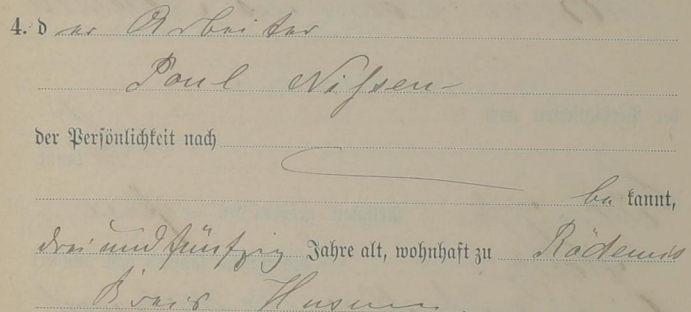 4. der Arbeiter
Paul Nissen
der Persönlichkeit nach
be kannt,
drei und fünfzig Jahre alt, wohnhaft zu Rödemis
Kreis Husum.